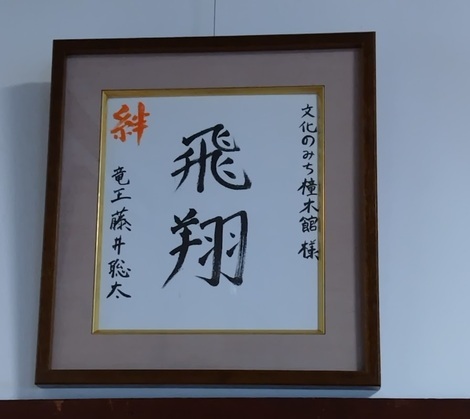 文化のみち橦木館様
飛翔
絆
竜王藤井聡太